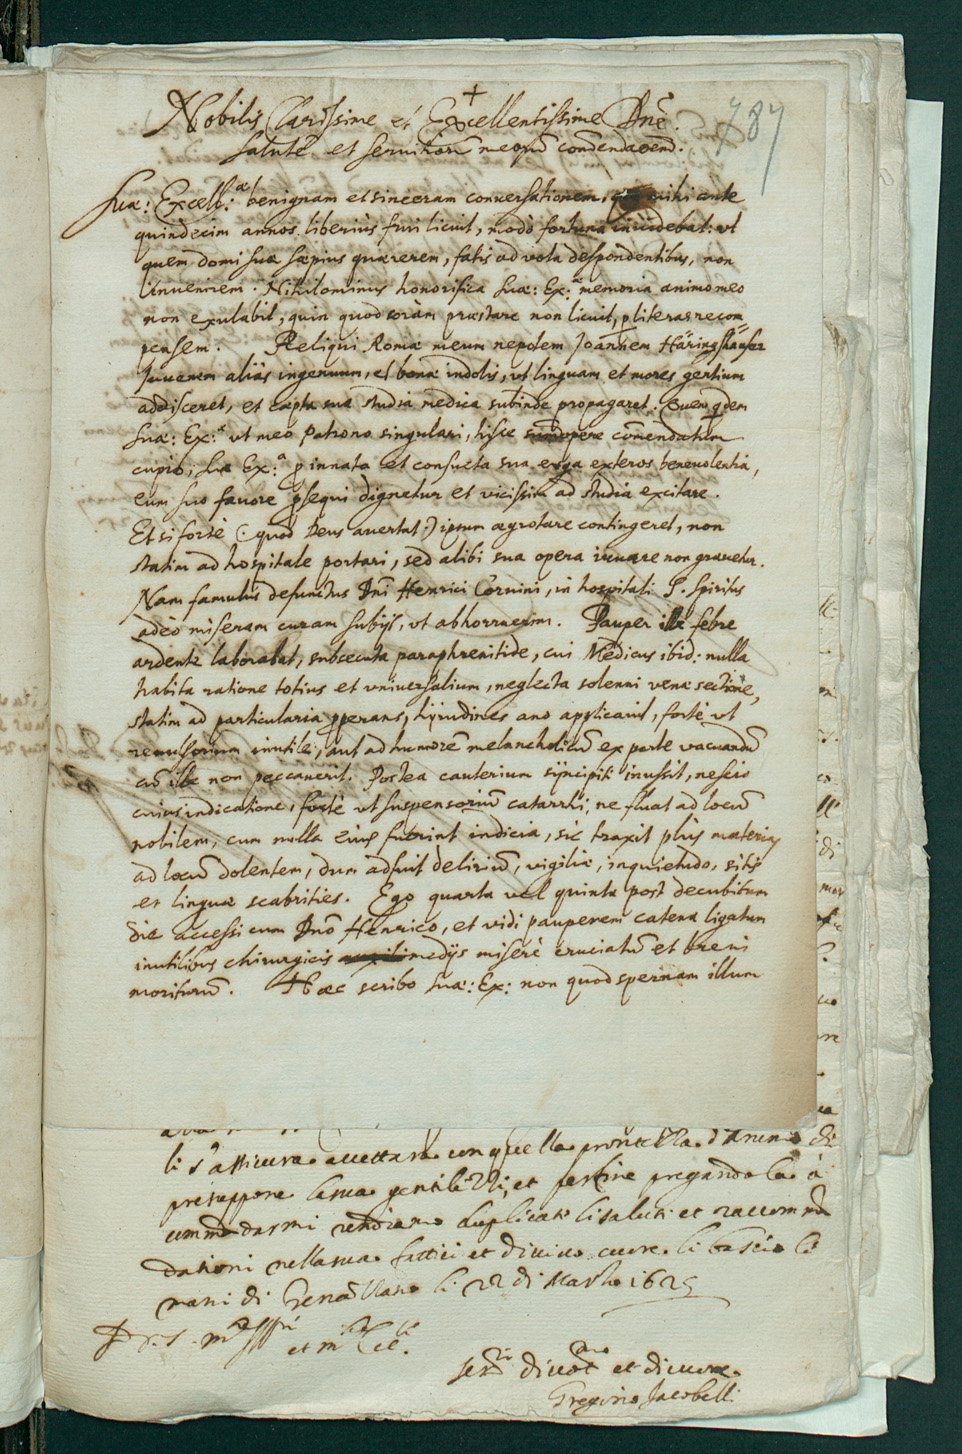 +
787
Nobilis Clarissime et Excellentissime Dnē.
salutē et servitiorū meorū com̄endationē.
Suæ: Excell:ᵃ benignam et sinceram conversationem, mihi ante
quindecim annos liberius frui licuit, modò fortuna invidebat: ut
quem domi suæ sæpius quærerem, fatis ad vota despondentibus, non
invenirem. Nihilominus honorifica Suæ: Ex:ᵃ memoria animo meo
non exulabit, quin quod coràm præstare non licuit, p literas recom
pensem. Reliqui Romæ meum nepotem Joannem Häringshauser
Juvenem aliàs ingenuum, et bonæ indolis, ut linguam et mores gentium
addisceret, et cæpta sua studia medica subinde propagaret. Quem qdem
Suæ: Ex:ᵃ ut meo Patrono singulari, hisce com̄endatum
cupio; Suæ Ex:ᵃ p innata et consueta sua erga exteros benevolentia,
eum suo favore psequi dignetur et vicissim ad studia excitare.
Et si fortè (: quod Deus avertat :) ipsum ægrotare contingeret, non
statim ad hospitale portari, sed alibi sua opera iuvare non gravetur.
Nam famulus defunctus Dn̄i Henrici Corvini, in hospitali S. Spiritus
adeò miseram curam subijt, ut abhorruerim. Pauper ille febre
ardente laborabat, subsecuta paraphrenitide, cui Medicus ibid: nulla
habita ratione totius et universalium, neglecta solenni venæ sectione,
statim ad particularia pperans, hirudines ano applicavit, fortè ut
revulsorium inutile, aut ad humorē melancholicū ex parte vacuandū
cū ille non peccaverit. Postea cauterium sijncipiti inussit, nescio
cuius indicatione, fortè ut suspensorium catarrhi, ne fluat ad locū
nobilem, cum nulla eius fuerint indicia, sic traxit plus materiæ
ad locū dolentem, dum adfuit deliriū, vigiliæ, inquietudo, sitis
et linguæ scabrities. Ego quarta vel quinta post decubitum
die accessi cum Dn̄o Henrico, et vidi pauperem catena ligatum
inutilibus chirurgicis medijs miserè cruciatū et brevi
moriturū. Hæc scribo Suæ: Ex: non quod spernam illum
li s'assicura accettara con quella prontezza d'animo che
presuppone la sua gentilezza, et per fine pregandola à
com̄andarmi rendiamo duplicati li saluti et raccoman
dationi nella sua et di vivo cuore li bascio le
mani di li 22 di Marzo 1625
Di V.S. m
et divot et di cuore
Gregorio Jacobelli